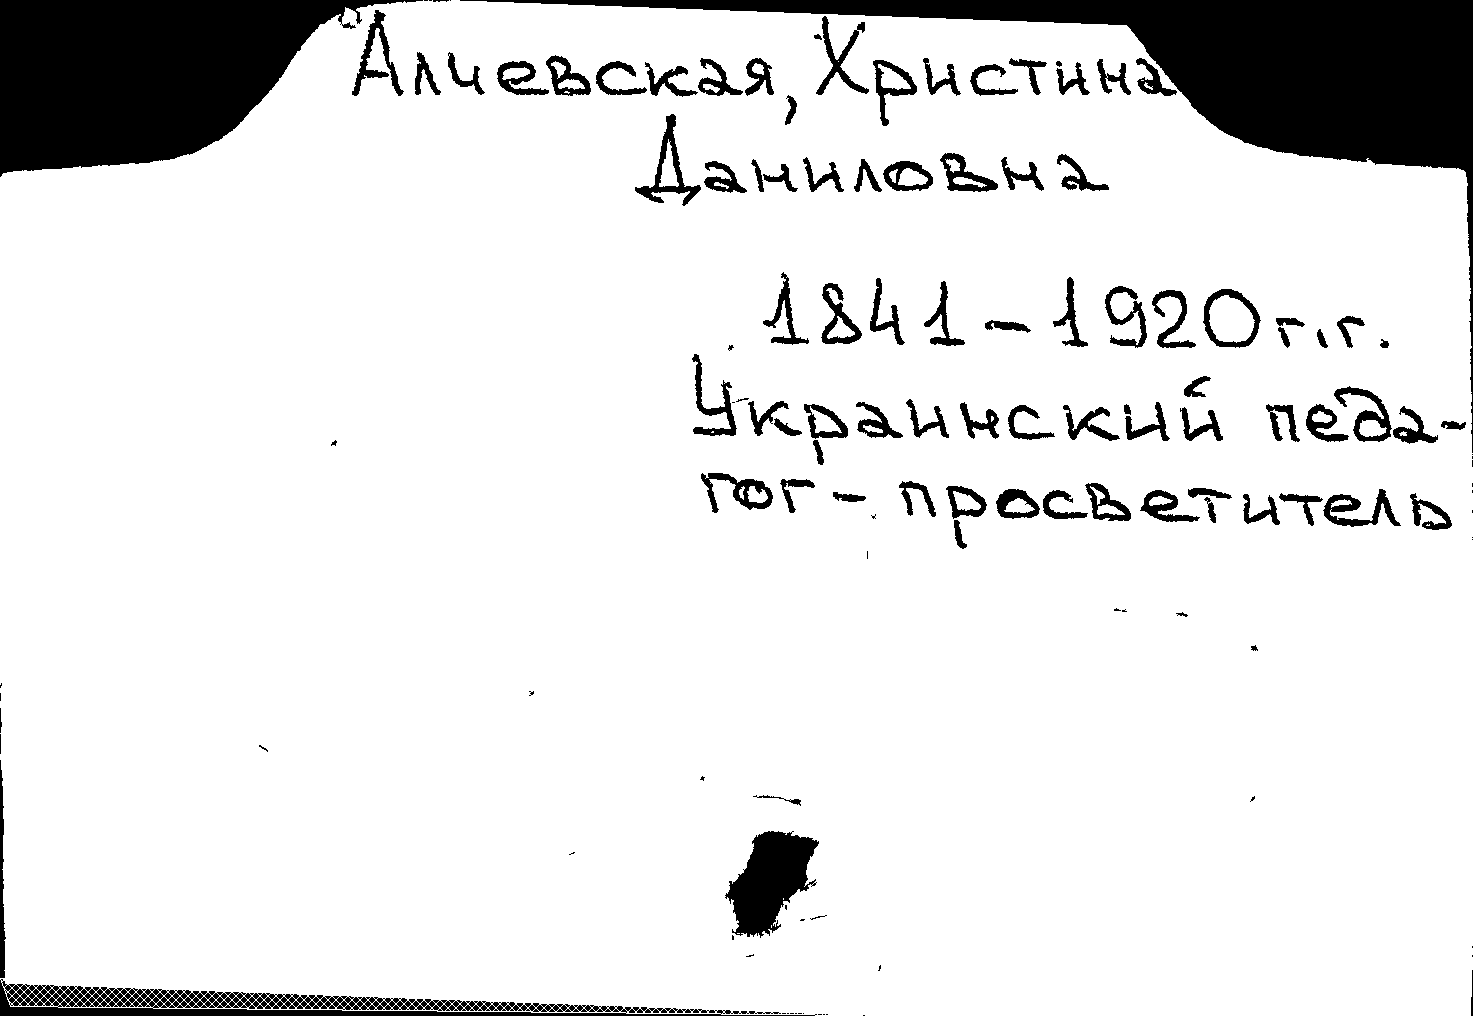 Алчевская, Христина
Даниловна
1841-1920г.г.
Украинский педа-
гог-просветитель